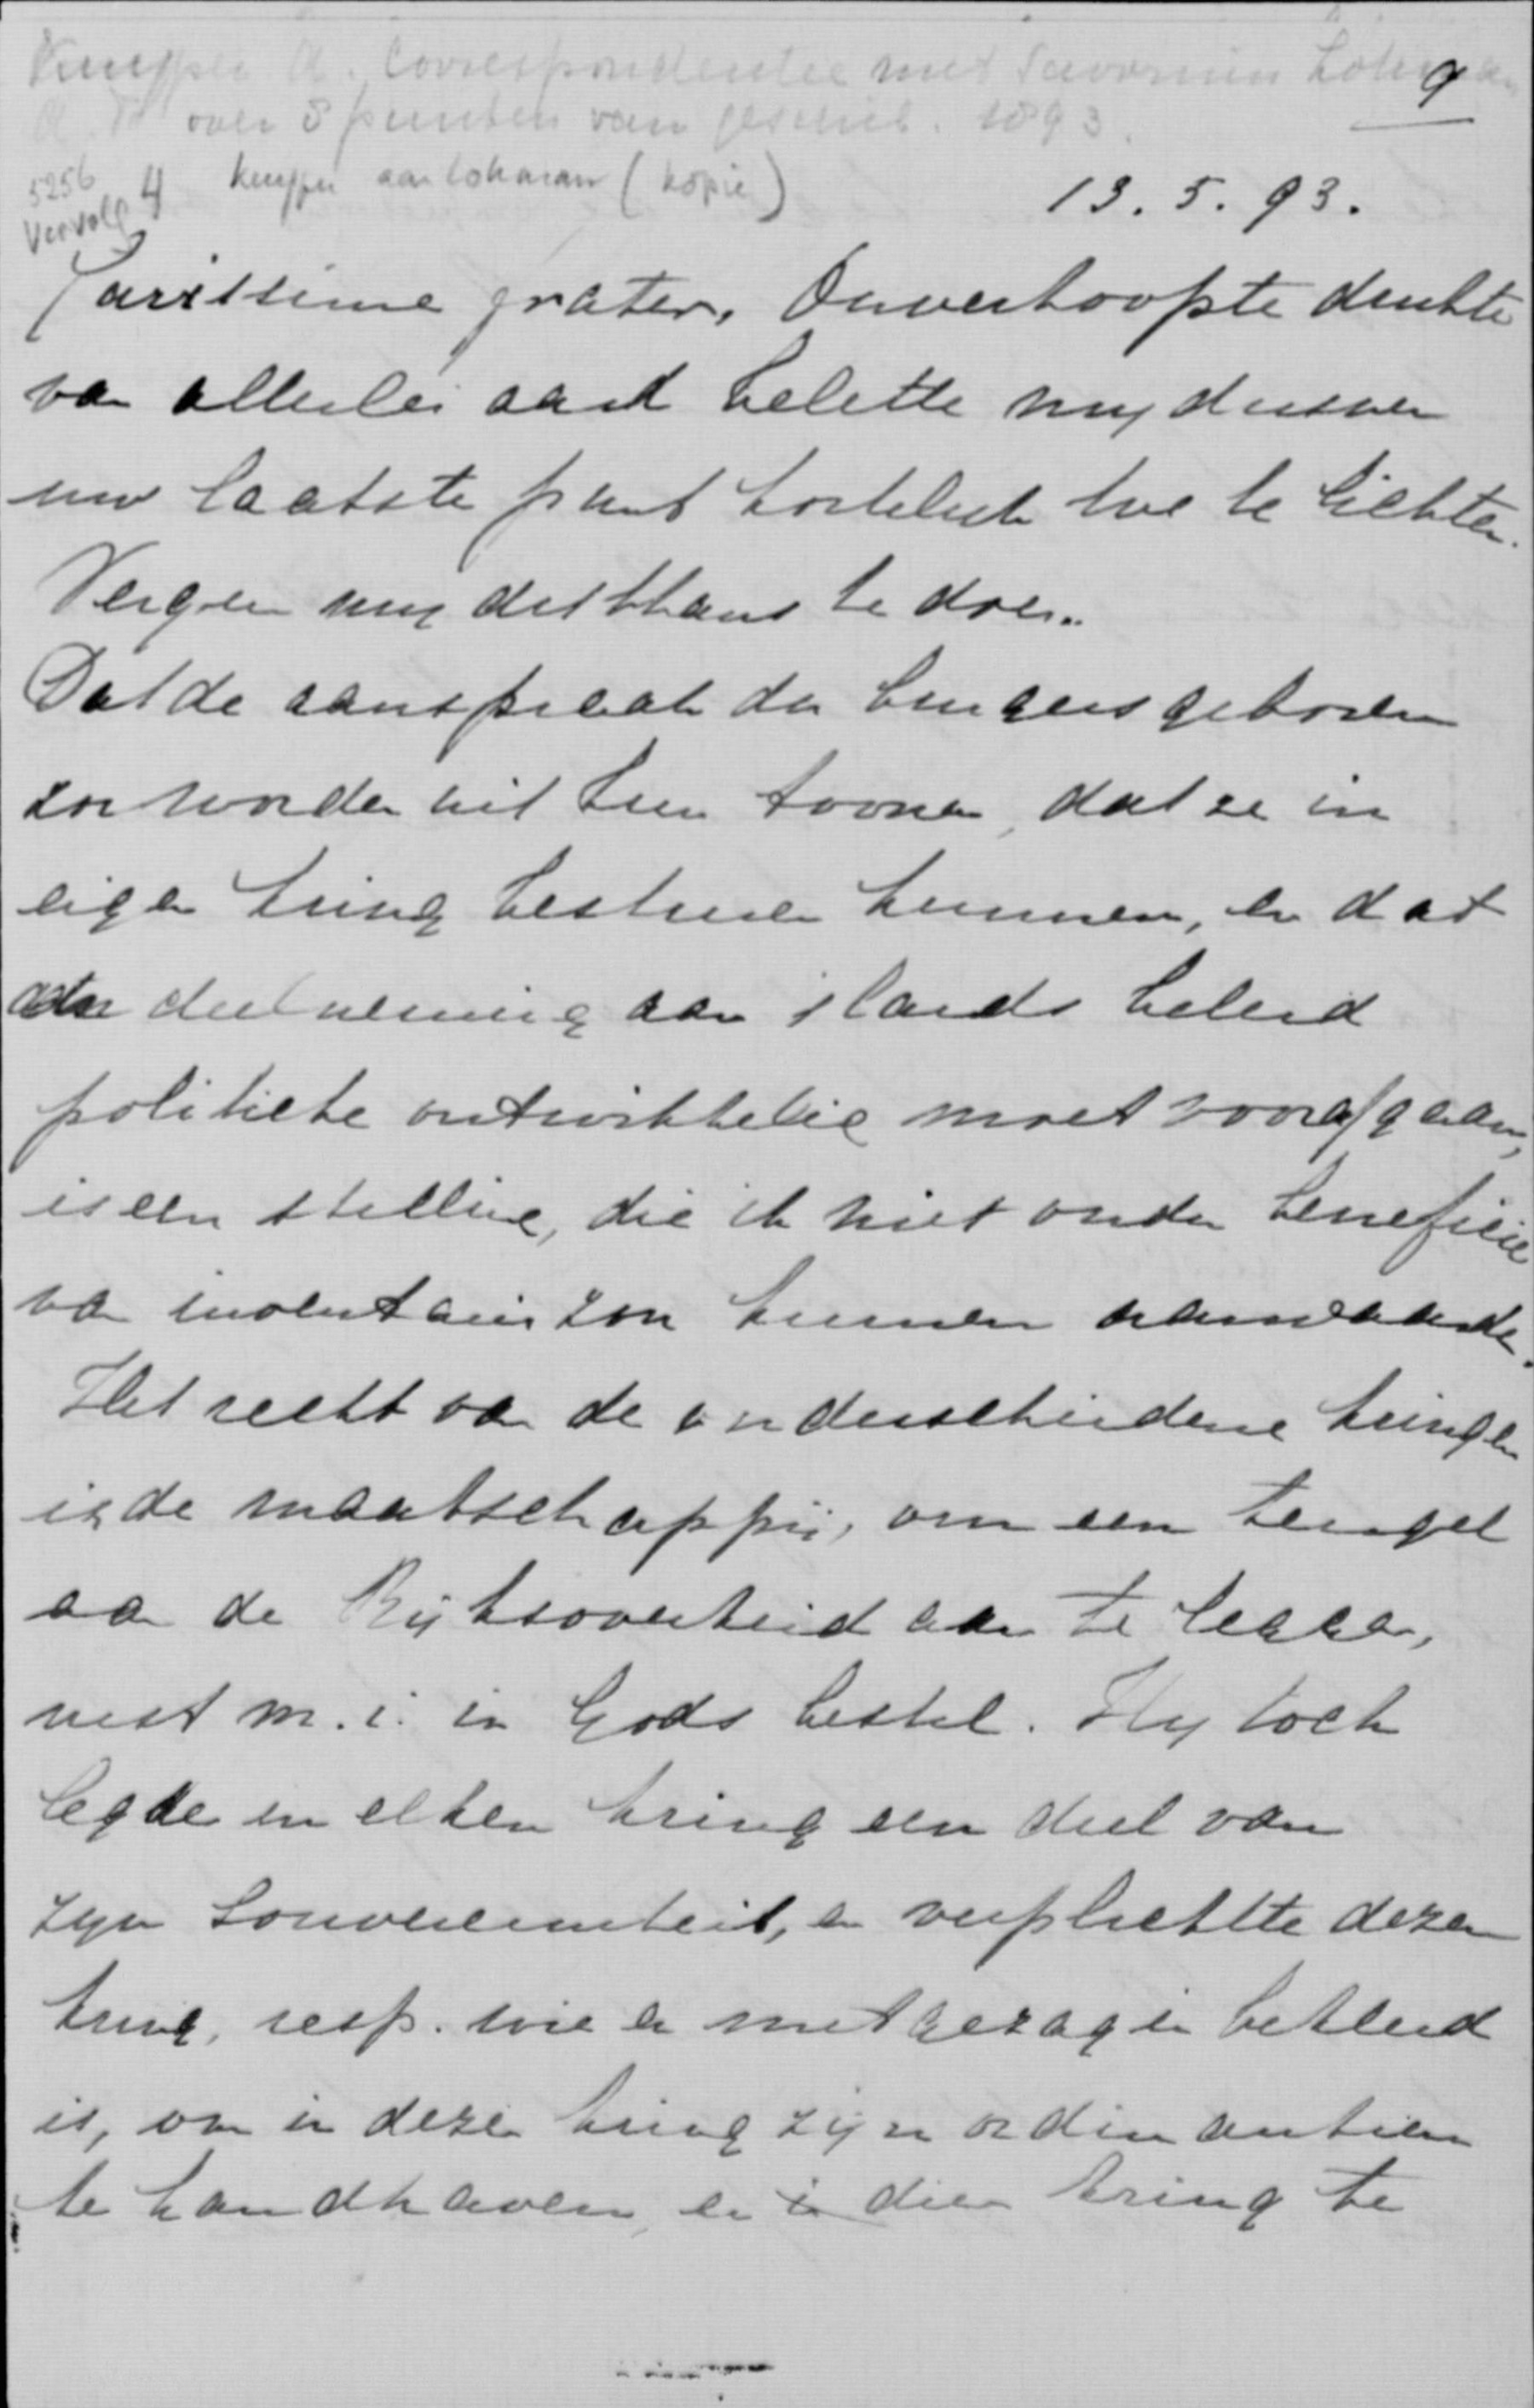 Kuyper A. Correspondentie met Savornin Lohman
over 5 punten van geschil. 1893.
9
5256 4 Kuyper aan Lohman (kopie)
Vervolg
13.5.93.
Carissime frater, Onverhoopte drukte
van allerlei aard belette mij dusver
uw laatste punt kortelijk toe te lichten.
Vergun mij dit thans te doen.
Dat de aanspraak der burgers geboren
zou worden uit hun toonen, dat ze in
eigen kring besturen kunnen, en dat
aan deelneming aan 's lands beleid
politieke ontwikkeling moet voorafgaan,
is een stelling, die ik niet onder beneficie
van inventaris zou kunnen aanvaarden.
Het recht van de onderscheidene kringen
in de maatschappij, om een teugel
aan de Rijksoverheid aan te leggen,
rust m.i. in Gods bestel. Hij toch
legde in elken kring een deel van
zijn Souvereiniteit, en verplichtte dezen
kring, resp. wie er met gezag in bekleed
is, om in dezen kring zijn ordinantien
te handhaven, en in dien kring te